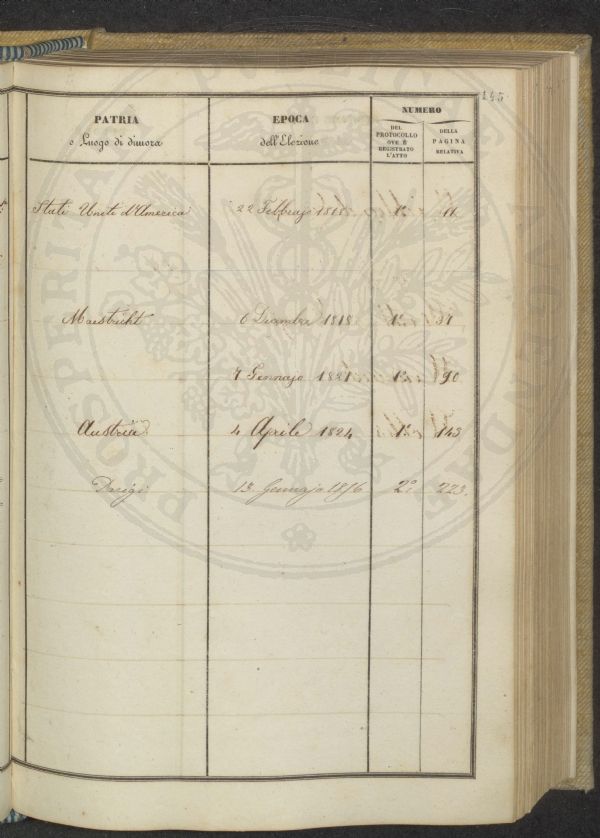 145
PATRIA
o Luogo di dimora
EPOCA
dell'Elezione
NUMERO
DEL
PROTOCOLLO
OVE È
REGISTRATO
L'ATTO
DELLA
PAGINA
RELATIVA
Stati Uniti d'America 22 Febbrajo 1818 1º
Maestricht 6 Dicembre 1818 1º 37
7 Gennajo 1821 1º 90
Austria 4 Aprile 1824 1º 143
Parigi 13 Gennajo 1856 2º 223.
PROSPERITATI PUBLICAE AUGENDAE